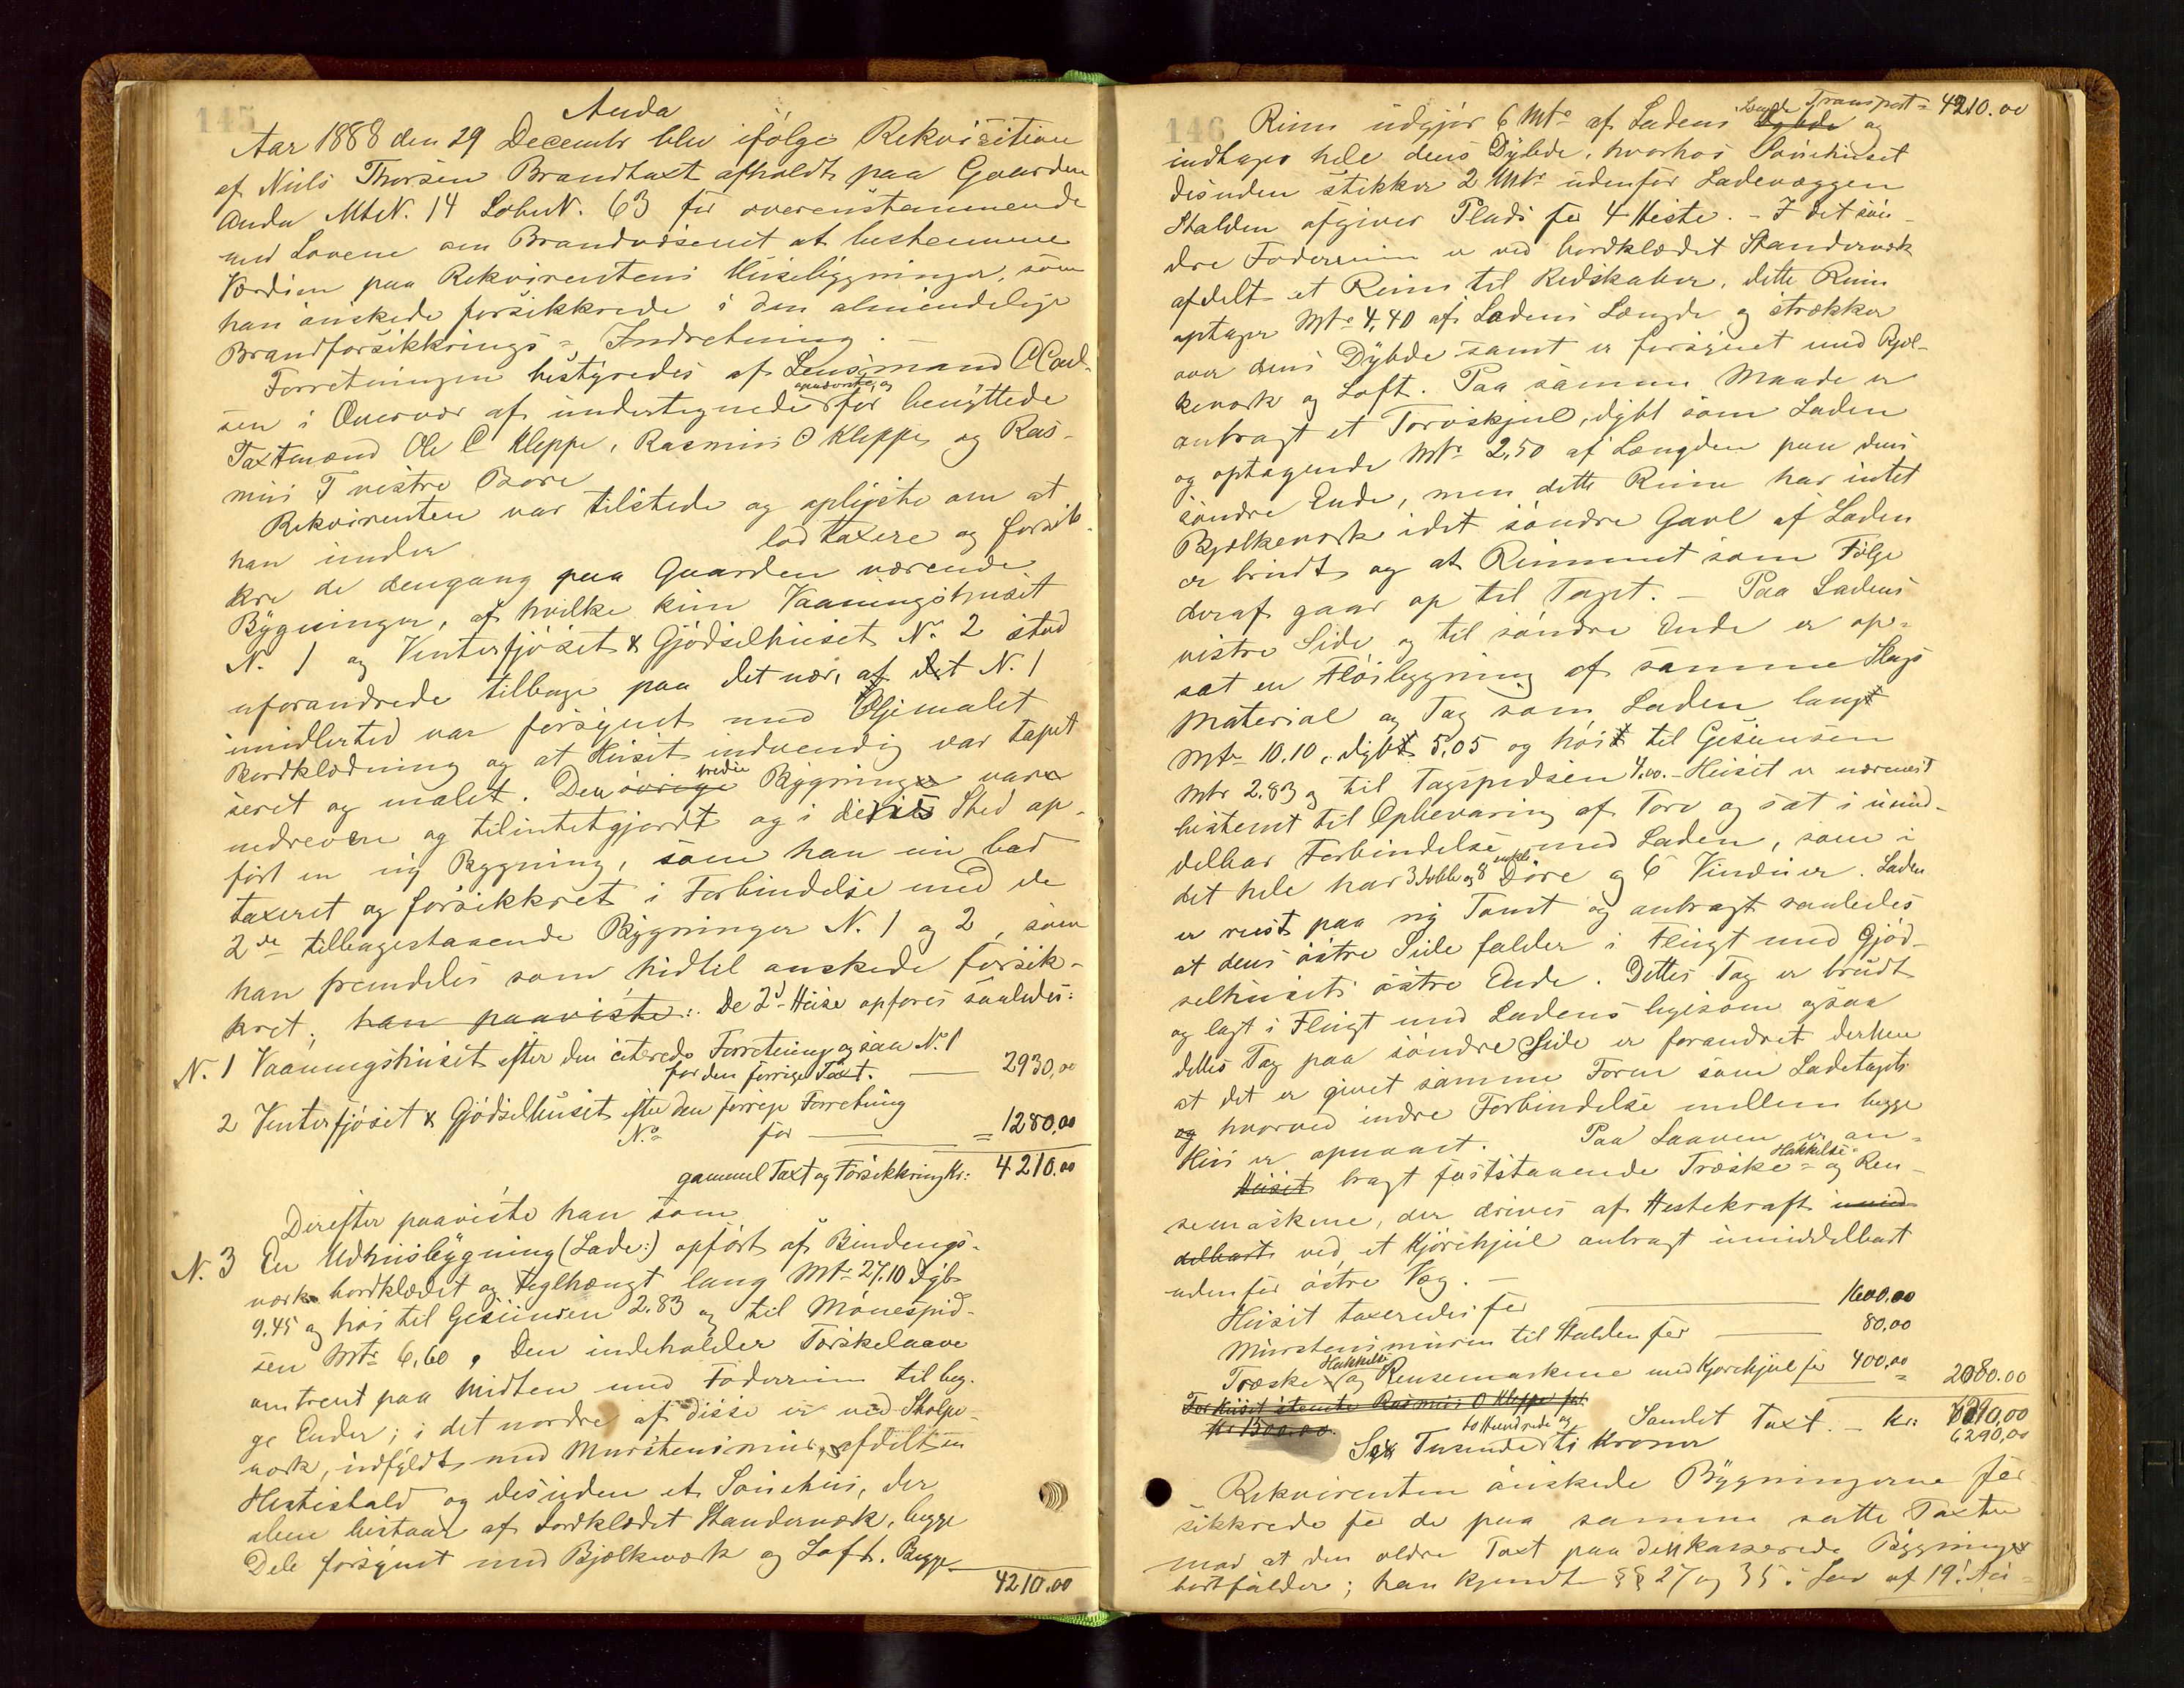 145
Anda
Aar 1888 den 29 Decembr blev ifølge Rekvisition
af Niels Thorsen Brandtaxt afholdt paa Gaarden
Anda MtN. 14 LøbeN. 63 for overenstemmende
med Lovene om Brandvæsenet at bestemme
Værdien paa Rekvirentens Husebygninger, som
han ønskede forsikkrede i den almindelige
Brandforsikkrings= Indretning.
Forretningen bestyredes af Lensmand
sen i af undertegnede opnævnte, og før benyttede
Taxtmænd Ole C Kleppe, Rasmus O Kleppe og Ras-
mus T vestre Bore
Rekvirenten var tilstede og oplyste om at
han under lod taxere og forsik-
kre de dengang paa Gaarden værende
Bygninger, af hvilke kun Vaaningshuset
N. 1 og Vinterfjøset & Gjødselhuset N. 2 stod
uforandrede tilbage paa det nær, at N. 1
imidlertid var forsynet med Oljemalet
Bordklædning og at Huset indvendig var tapet
seret og malet. Den øvrige tredie Bygning var
nedreven og tilintetgjordt og i dens Sted op-
ført en ny Bygning, som han nu bad
taxeret og forsikkret i Forbindelse med de
2de tilbagestaaende Bygninger N. 1 og 2, som
han fremdeles som hidtil ønskede forsik-
kret. han paaviste: De 2d Huse opføres saaledes:
N. 1 Vaaningshuset efter den citerede Forretning ogsaa No 1
for den forrige Taxt. 2930,00
2 Vinterfjøset & Gjødselhuset efter den forrige Forretning
No for = 1280,00
gammel Taxt og Forsikkring Kr: 4210.00
Derefter paaviste han som
N. 3 En Udhusbygning (Lade:) opført af Bindings-
værk bordklædet og teglhængt lang Mtr 27.10 dyb
9.45 og høi til Gesimsen 2.83 og til Mønespid-
sen Mtr 6,60, Den indeholder Tærskelaave
omtrent paa Midten med Foderrum til beg-
ge Ender; i det nordre af disse er ved Stolpe-
værk, udfyldt med Murstensmur, afdelt en
Hestestald og desuden et Sauehus, der
alene bestaar af bordklædet Standerværk, begge
Dele forsynet med Bjælkeværk og Loft. Begge
4210.00
146
Transport = 4210.00
Rum udgjør 6 Mtr af Ladens Dybde Længde og
indtager hele dens Dybde, hvorhos Sauehuset
desuden stikker 2 Mtr udenfor Ladevæggen
Stalden afgiver Plads for 4 Heste. - I det søn-
dre Foderrum er ved bordklædet Standerværk
afdelt et Rum til Redskaber, dette Rum
optager Mtr 4,40 af Ladens Længde og strækker
over dens Dybde samt er forsynet med Bjæl-
keværk og Loft. Paa samme Maade er
anbragt et Torvskjul, dybt som Laden
og optagende Mtr 2,50 af Længden paa dens
søndre Ende, men dette Rum har intet
Bjælkeværk idet søndre Gavl af Laden
er brudt og at Rummet som Følge
deraf gaar op til Taget. - Paa Ladens
vestre Side og til søndre Ende er op-
sat en Fløibygning af samme Slags
Material og Tag som Laden lang
Mtr 10.10, dyb 5,05 og høi til Gesimsen
Mtr 2.83 og til Tagspidsen 4.00. - Huset er nærmest
bestemt til Opbevaring af Torv og sat i umid-
delbar Forbindelse med Laden, som i
det hele har 3 doble og 8 enkle Døre og 6 Vinduer. Laden
er reist paa ny Tomt og anbragt saaledes
at dens østre Side falder i Flugt med Gjød-
selhusets østre Ende. Dettes Tag er brudt
og lagt i Flugt med Ladens ligesom ogsaa
dettes Tag paa søndre Side er forandret derhen
at det er givet samme Form som Ladetaget
og hvorved indre Forbindelse mellem begge
Hus er opnaaet. Paa Laaven er an-
Huset bragt faststaaende Træske= Hakkelse= og Ren-
semaskine, der drives af Hestekraft umid
delbart ved et Kjørehjul anbragt umiddelbart
udenfor østre Væg. -
Huset taxeredes for 1600.00
Murstensmuren til Stalden for 80,00
Træske Hakkelse og Rensemaskine med Kjørehjul for 400,00 = 2080.00
For Huset stemte Rasmus O Kleppe for
Kr 1500.00.
Samlet Taxt. - Kr: 6290,00
6290,00
Sex Tusinde to Hundrede og ti Kroner
Rekvirenten ønskede Bygningerne for
sikkrede for de paa samme satte Taxter
mod at den ældre Taxt paa den kasserede Bygning
bortfalder; han kjendte §§ 27 og 35 i Lov af 19' Au=